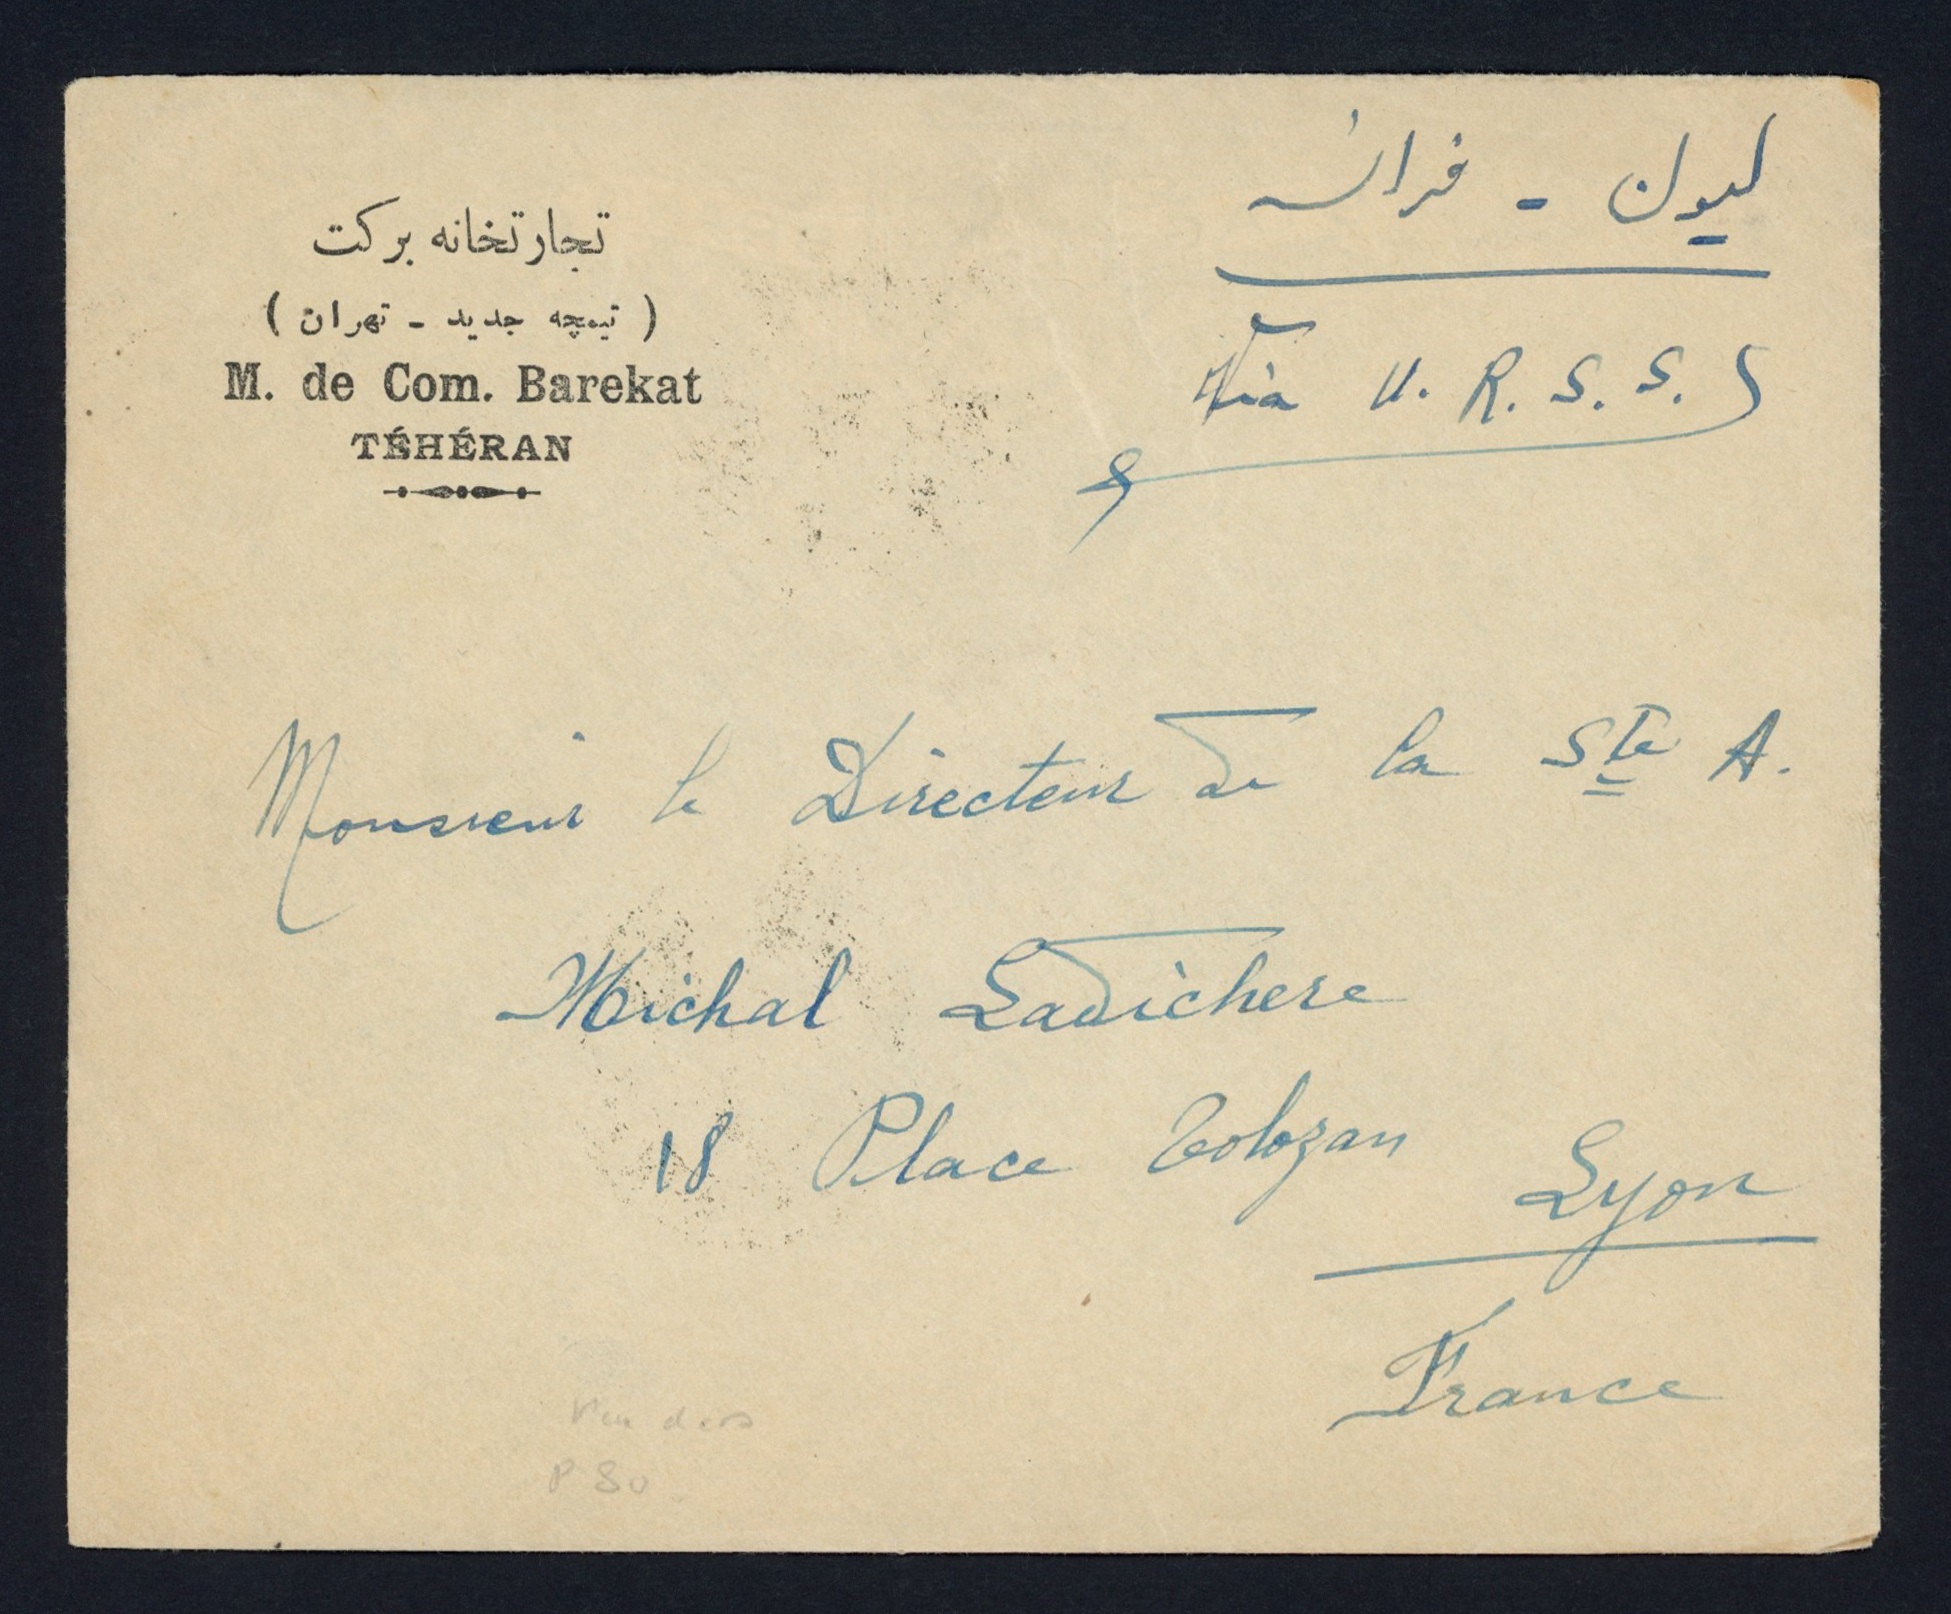 تجارتخانه برکت
( تیمچه جدید - تهران )
M. de Com. Barekat
TÉHÉRAN
لیون - فرانسه
Via U. R. S. S.
Monsieur le Directeur de la Ste A.
Michal Ladichere
18 Place Tolozan Lyon
France
P 80